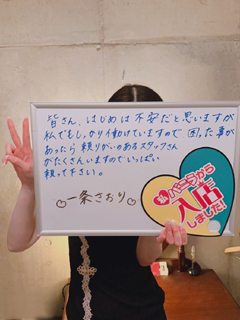 皆さん、はじめは不安だと思いますが
私でもしっかり働けていますので困った事が
あったら頼りがいのあるスタッフさん
がたくさんいますのでいっぱい
頼って下さい。
一条さおり
私バニラから
入店
しました!